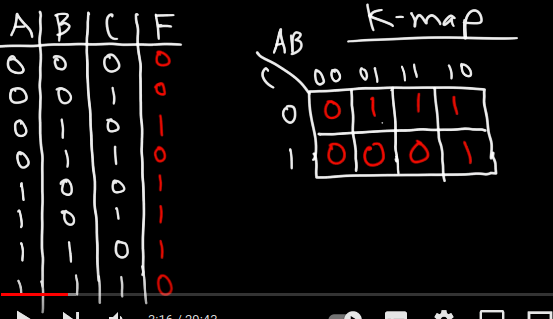 A B C F
0 0 0 0
0 0 1 0
0 1 0 1
0 1 1 0
1 0 0 1
1 0 1 1
1 1 0 1
1 1 1 0
K-map
AB
C
00 01 11 10
0 0 1 1 1
1 0 0 0 1
2:16 / 20:42